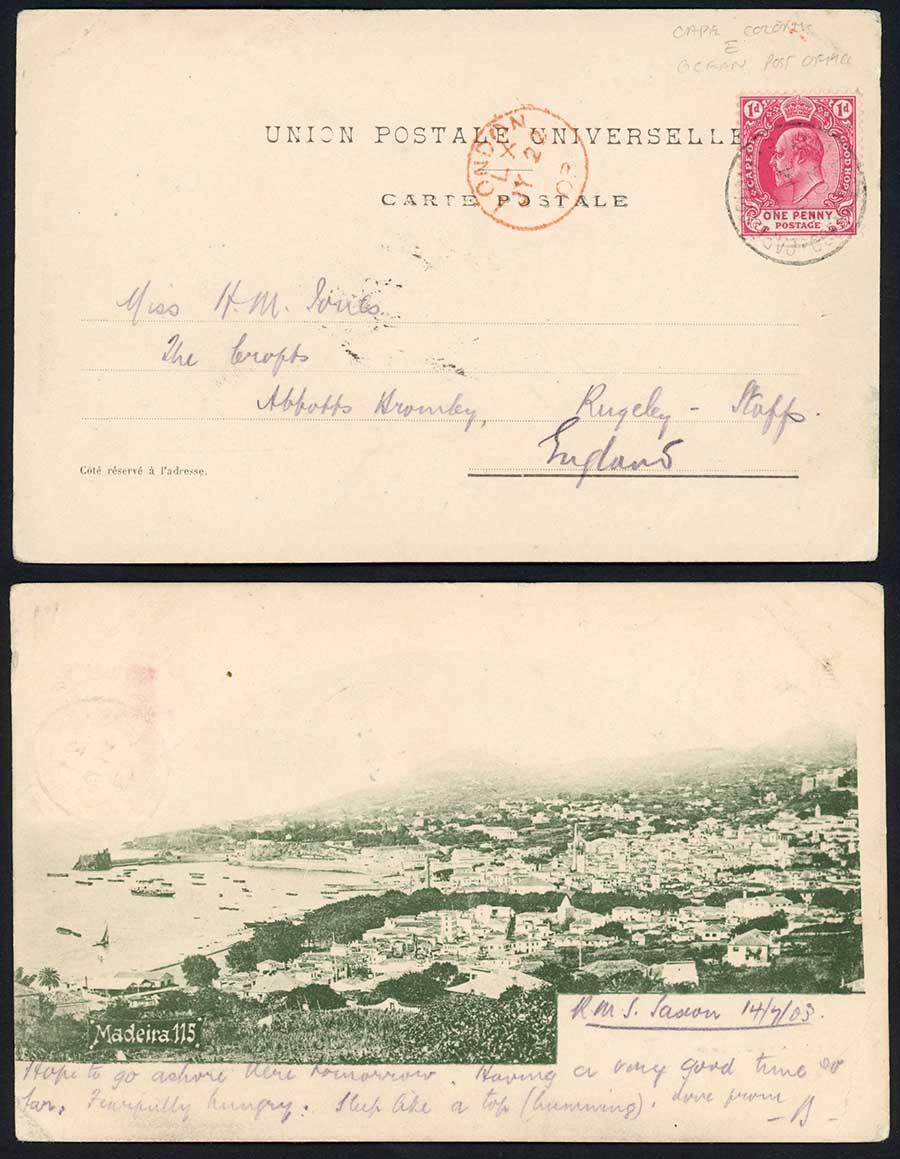 CAPE COLONY
E
OCEAN POST OFFICE
UNION POSTALE UNIVERSELLE
CARTE POSTALE
LONDON
LX
JY 22
03
1d 1d
CAPE OF GOOD HOPE
ONE PENNY
POSTAGE
Miss H. M. Jones
The Crofts
Abbotts Bromley, Rugeley - Staffs.
England
Côté réservé à l'adresse.
R.M.S. Saxon 14/7/03.
Madeira 115
Hope to go ashore here tomorrow. Having a very good time so
far. Fearfully hungry. Sleep like a top (humming). Love from
- B -